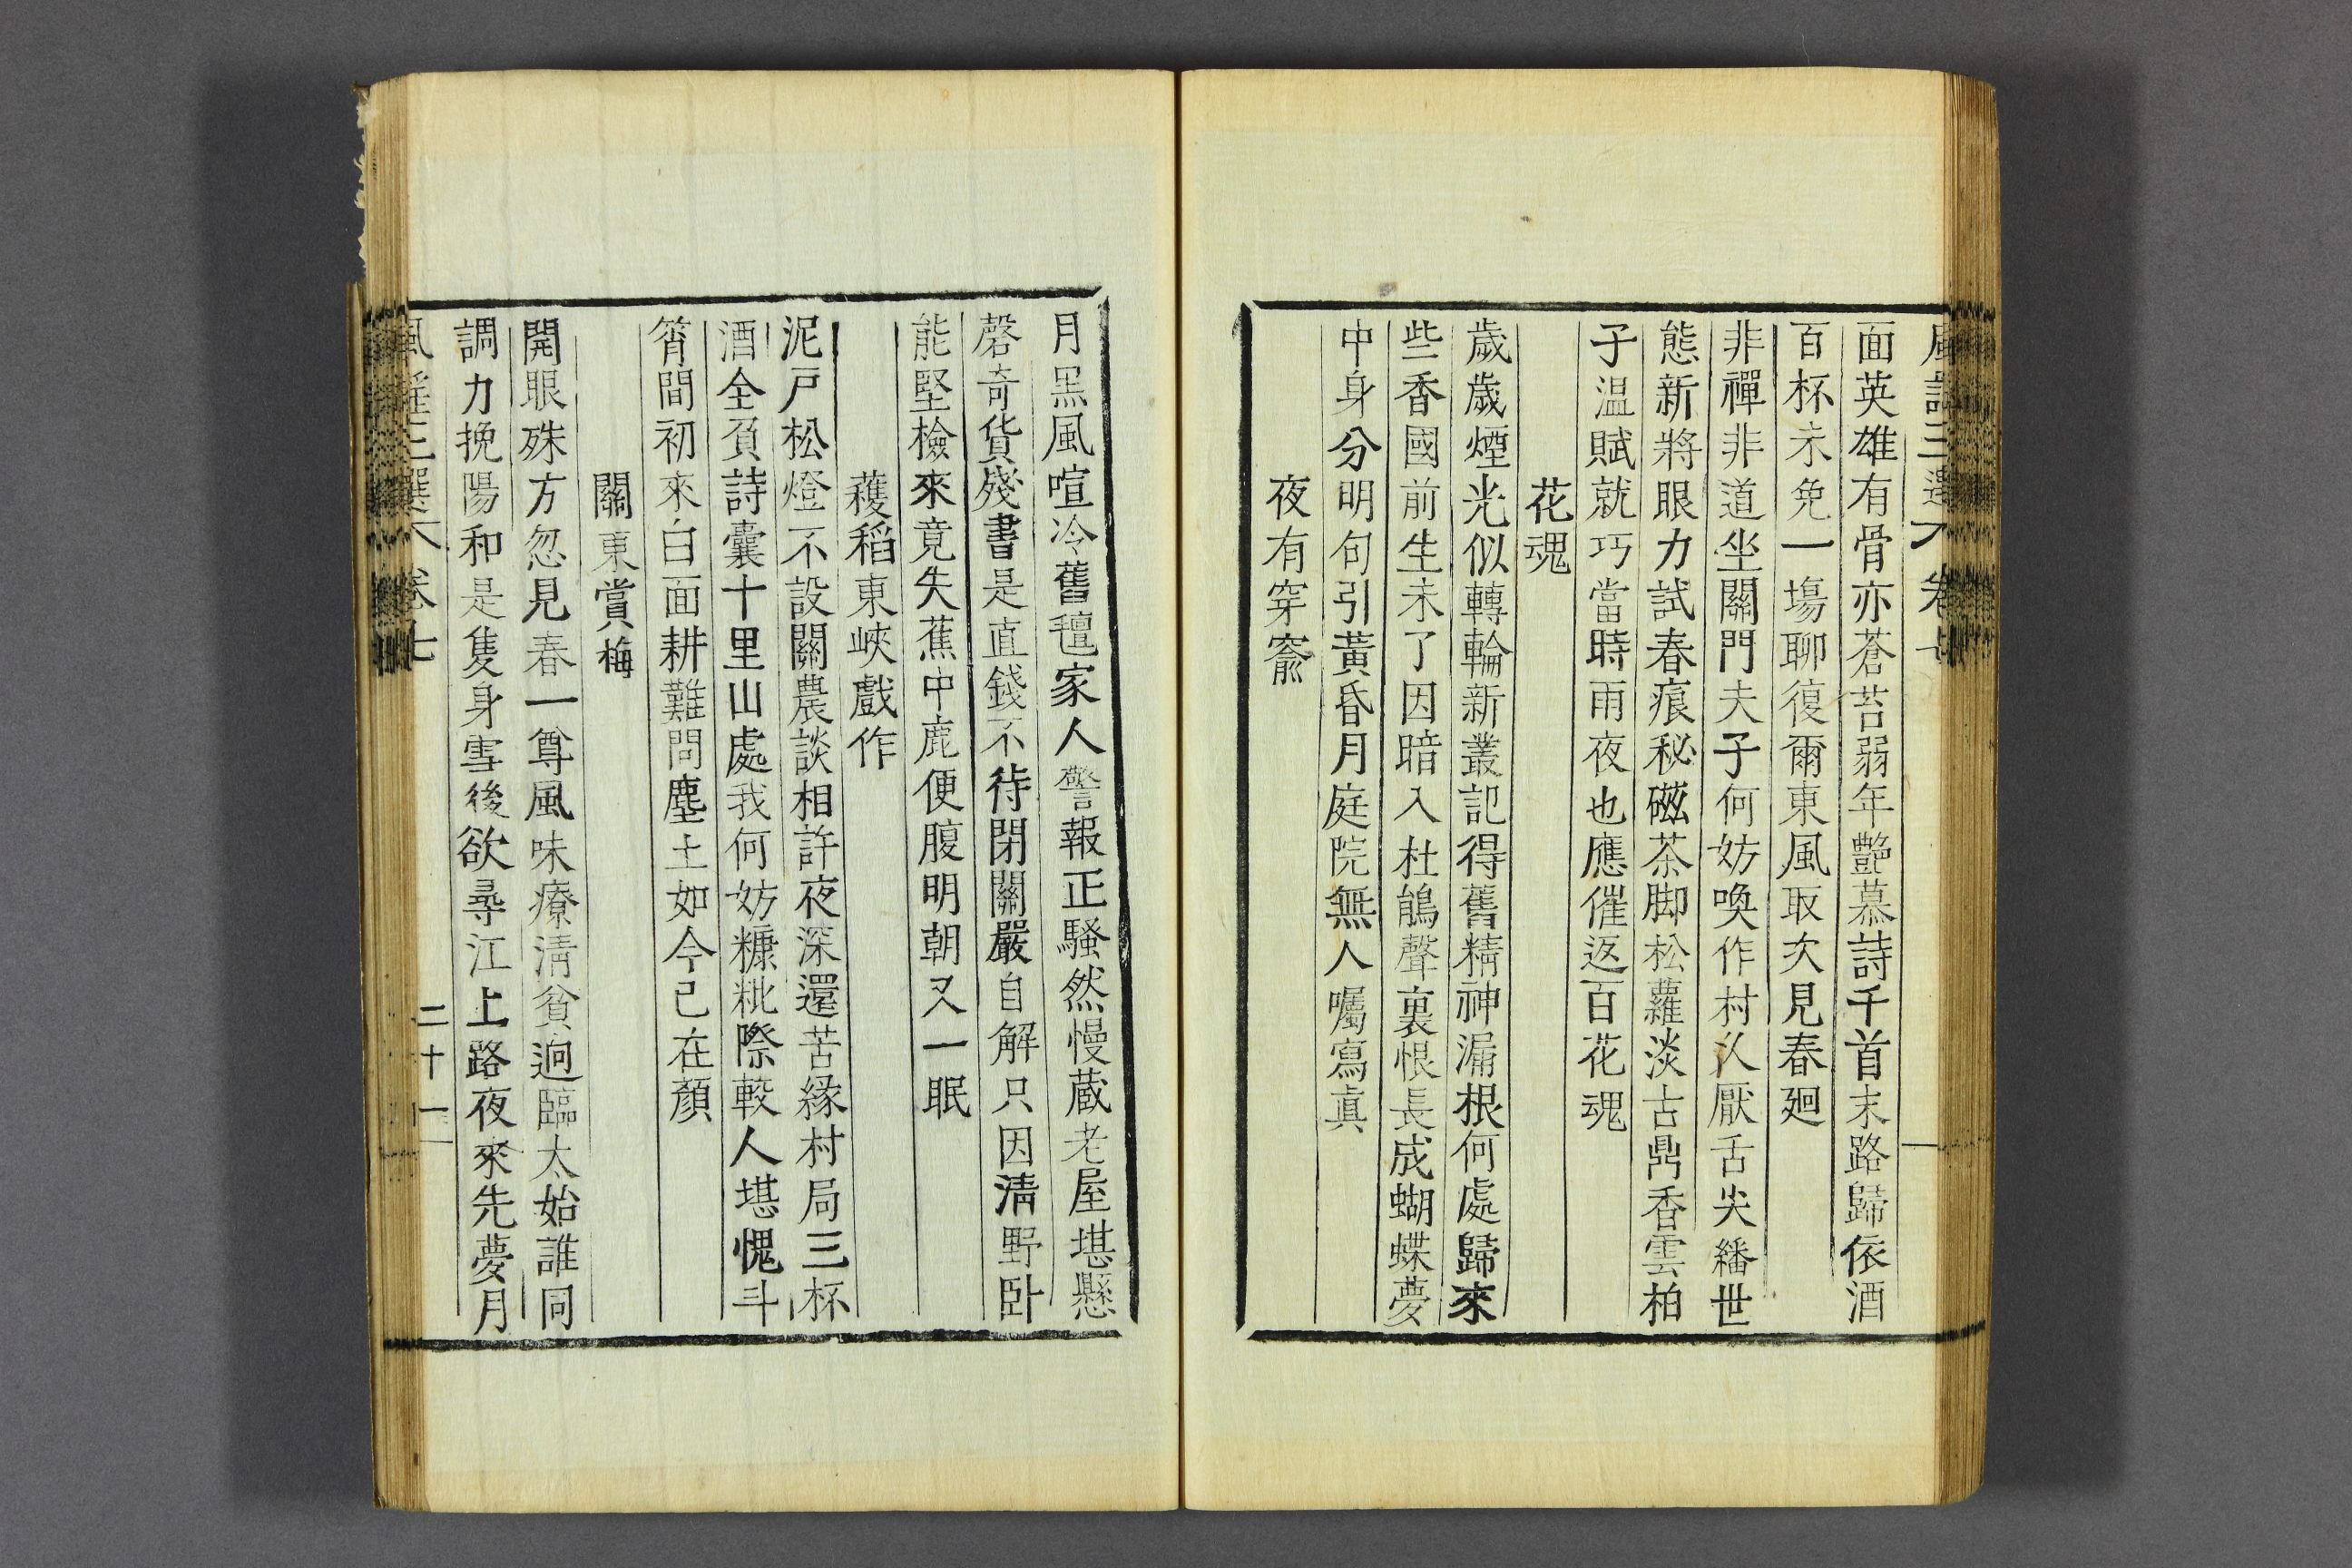 風謠三選 卷七
面英雄有骨亦蒼苔弱年艷慕詩千首末路歸依酒
百杯未免一塲聊復爾東風取次見春廻
非禪非道坐關門夫子何妨喚作村久厭舌尖繙世
態新將眼力試春痕秘磁茶脚松蘿淡古鼎香雲柏
子温賦就巧當時雨夜也應催返百花魂
花魂
歲歲煙光似轉輪新叢記得舊精神漏根何處歸來
些香國前生未了因暗入杜鵑聲裏恨長成蝴蝶夢
中身分明句引黃昏月庭院無人囑寫眞
夜有穿窬
月黑風喧冷舊氊家人警報正騷然慢蔵老屋堪懸
磬奇貨殘書是直錢不待閉關嚴自解只因淸野卧
能堅檢來竟失蕉中鹿便腹明朝又一眠
穫稻東峽戲作
泥戸松燈不設關農談相許夜深還苦緣村局三杯
酒全頁詩囊十里山處我何妨糠粃際較人堪愧斗
筲間初來白面耕難問塵土如今已在顏
關東賞梅
開眼殊方忽見春一尊風味療淸貧逈臨太始誰同
調力挽陽和是隻身雪後欲尋江上路夜來先夢月
風謠三選 卷七 二十一